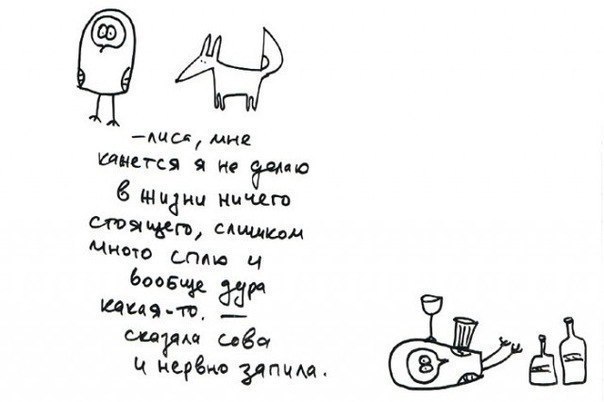 —лиса, мне
кажется я не делаю
в жизни ничего
стоящего, слишком
много сплю и
вообще дура
какая-то. —
сказала сова
и нервно запила.